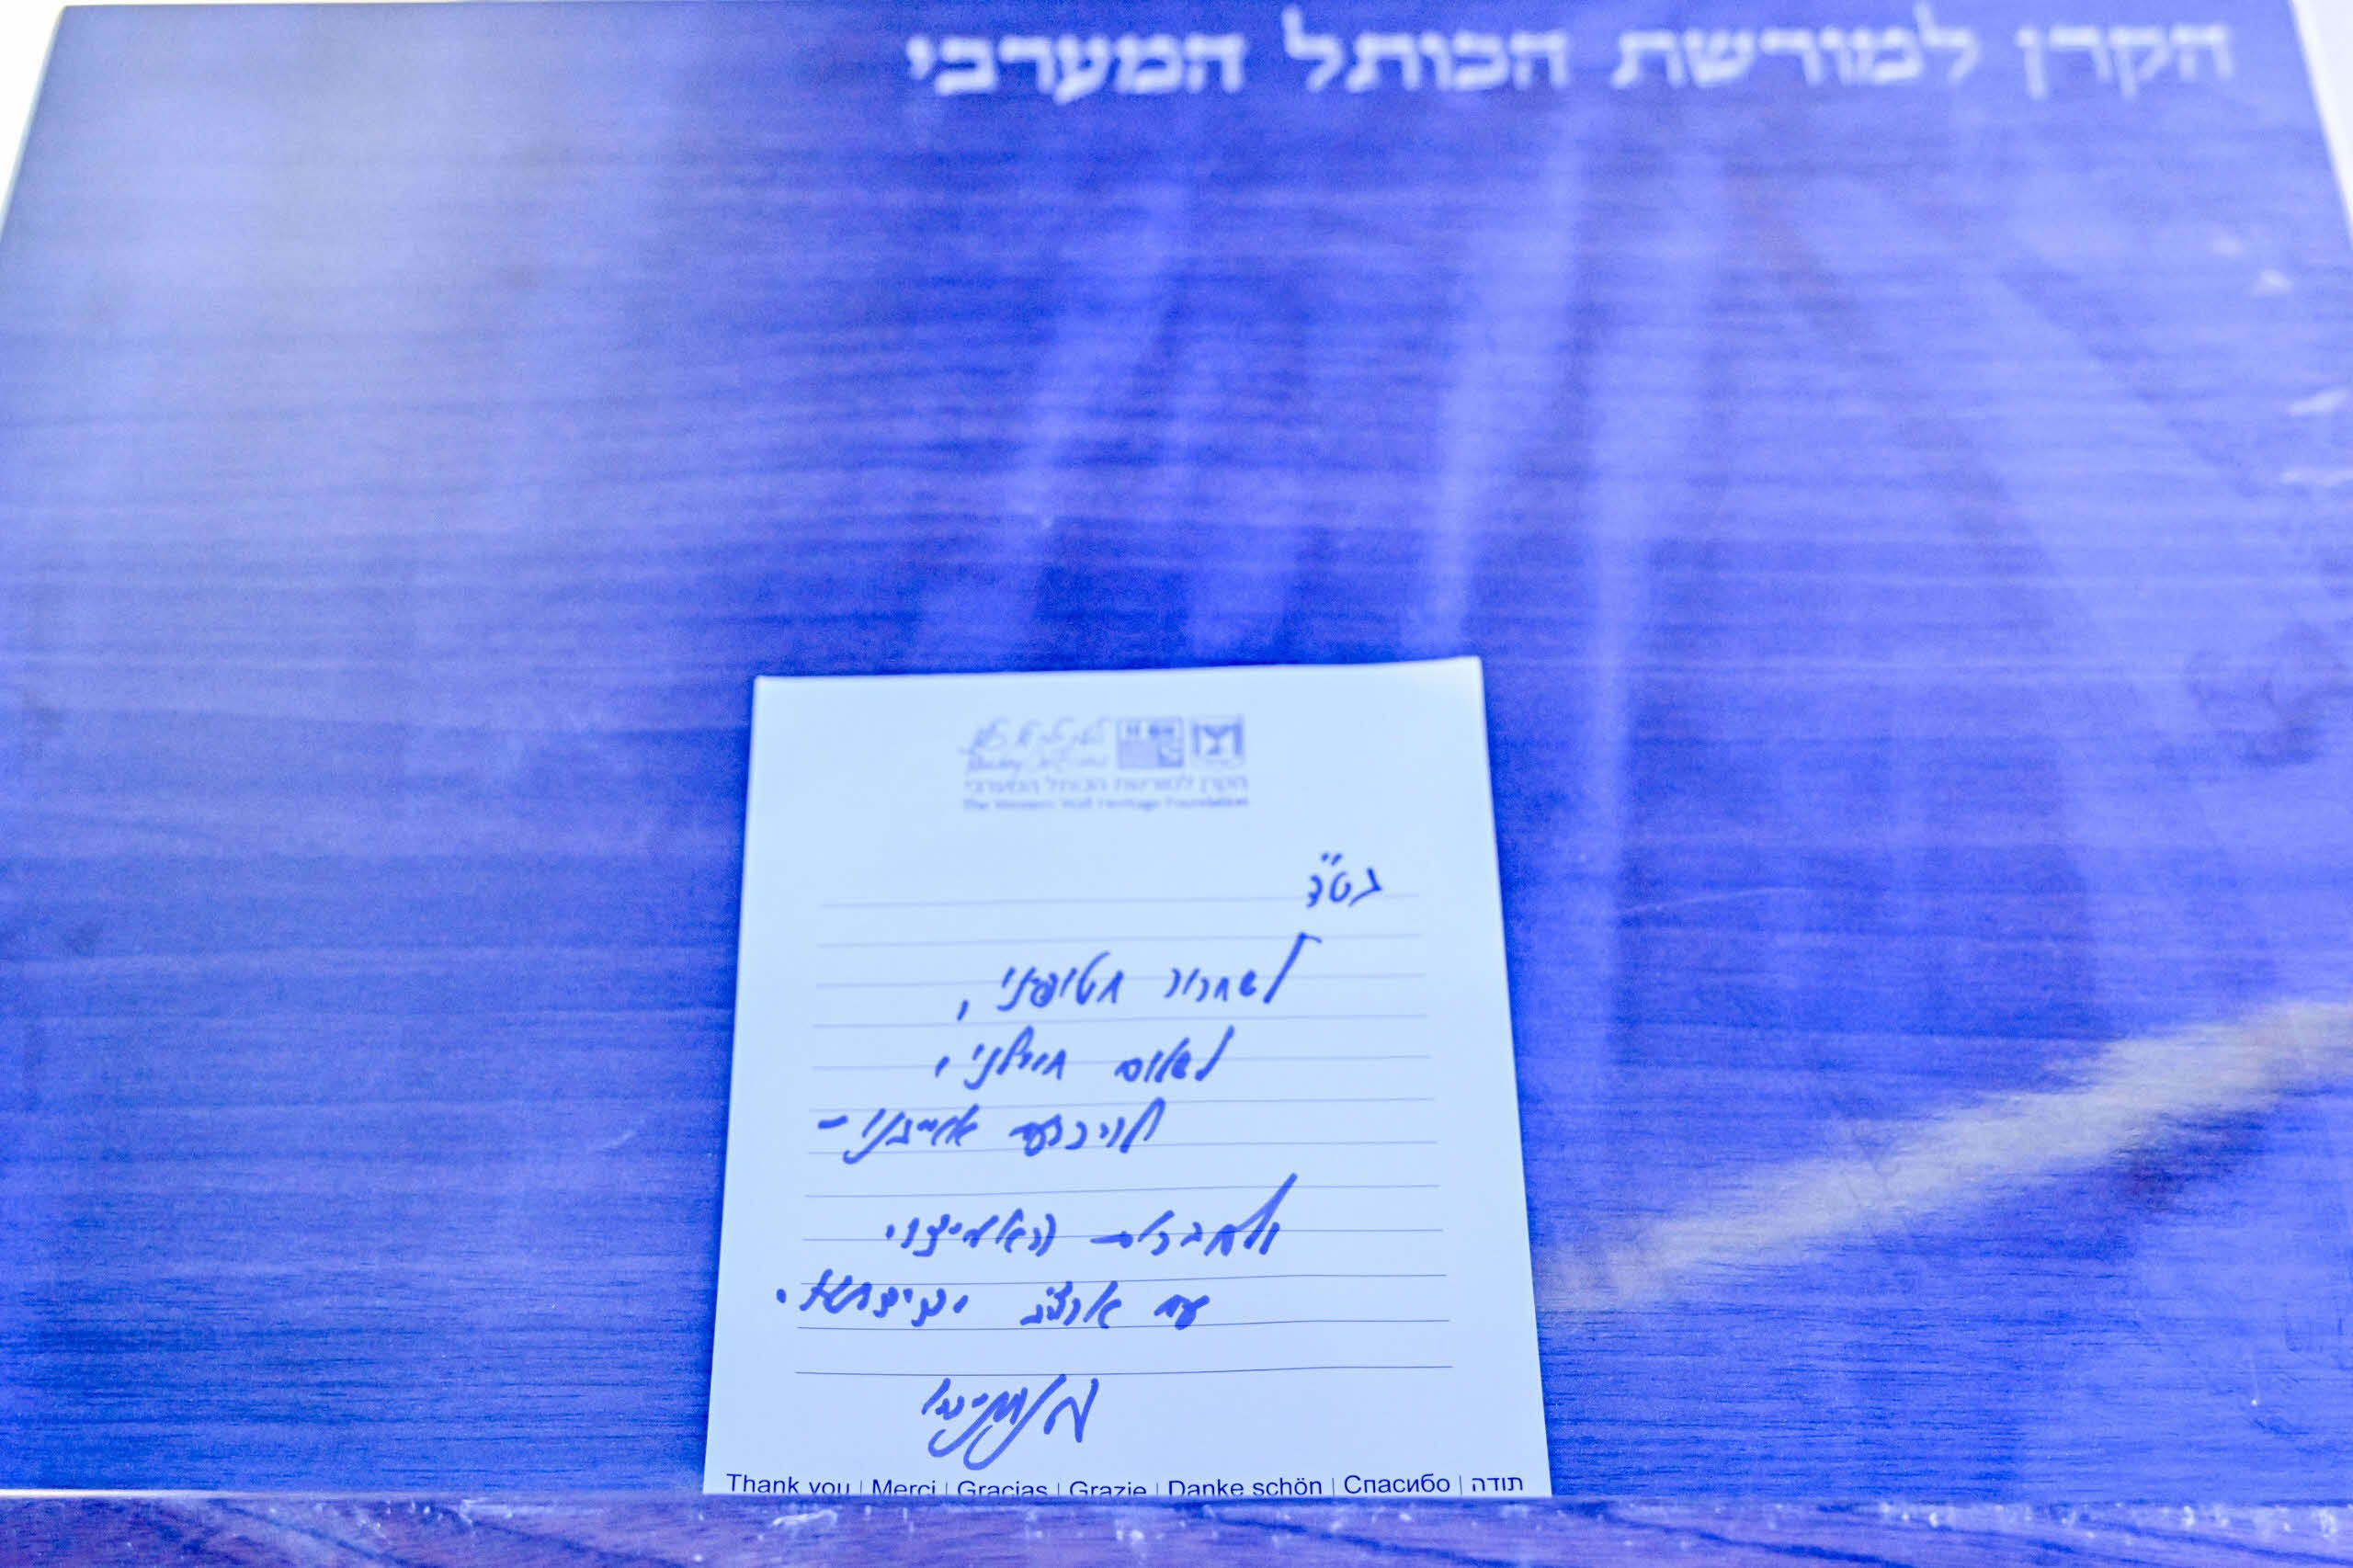 הקרן למורשת הכותל המערבי
הקרן למורשת הכותל המערבי
The Western Wall Heritage Foundation
בס"ד
לשחרור חטופנו,
לשלום חיילנו,
להכרעת אויבנו -
ולחברות האמיצה
עם ארצ"ב ונשיאה.
Thank you | Merci | Gracias | Grazie | Danke schön | Спасибо | תודה